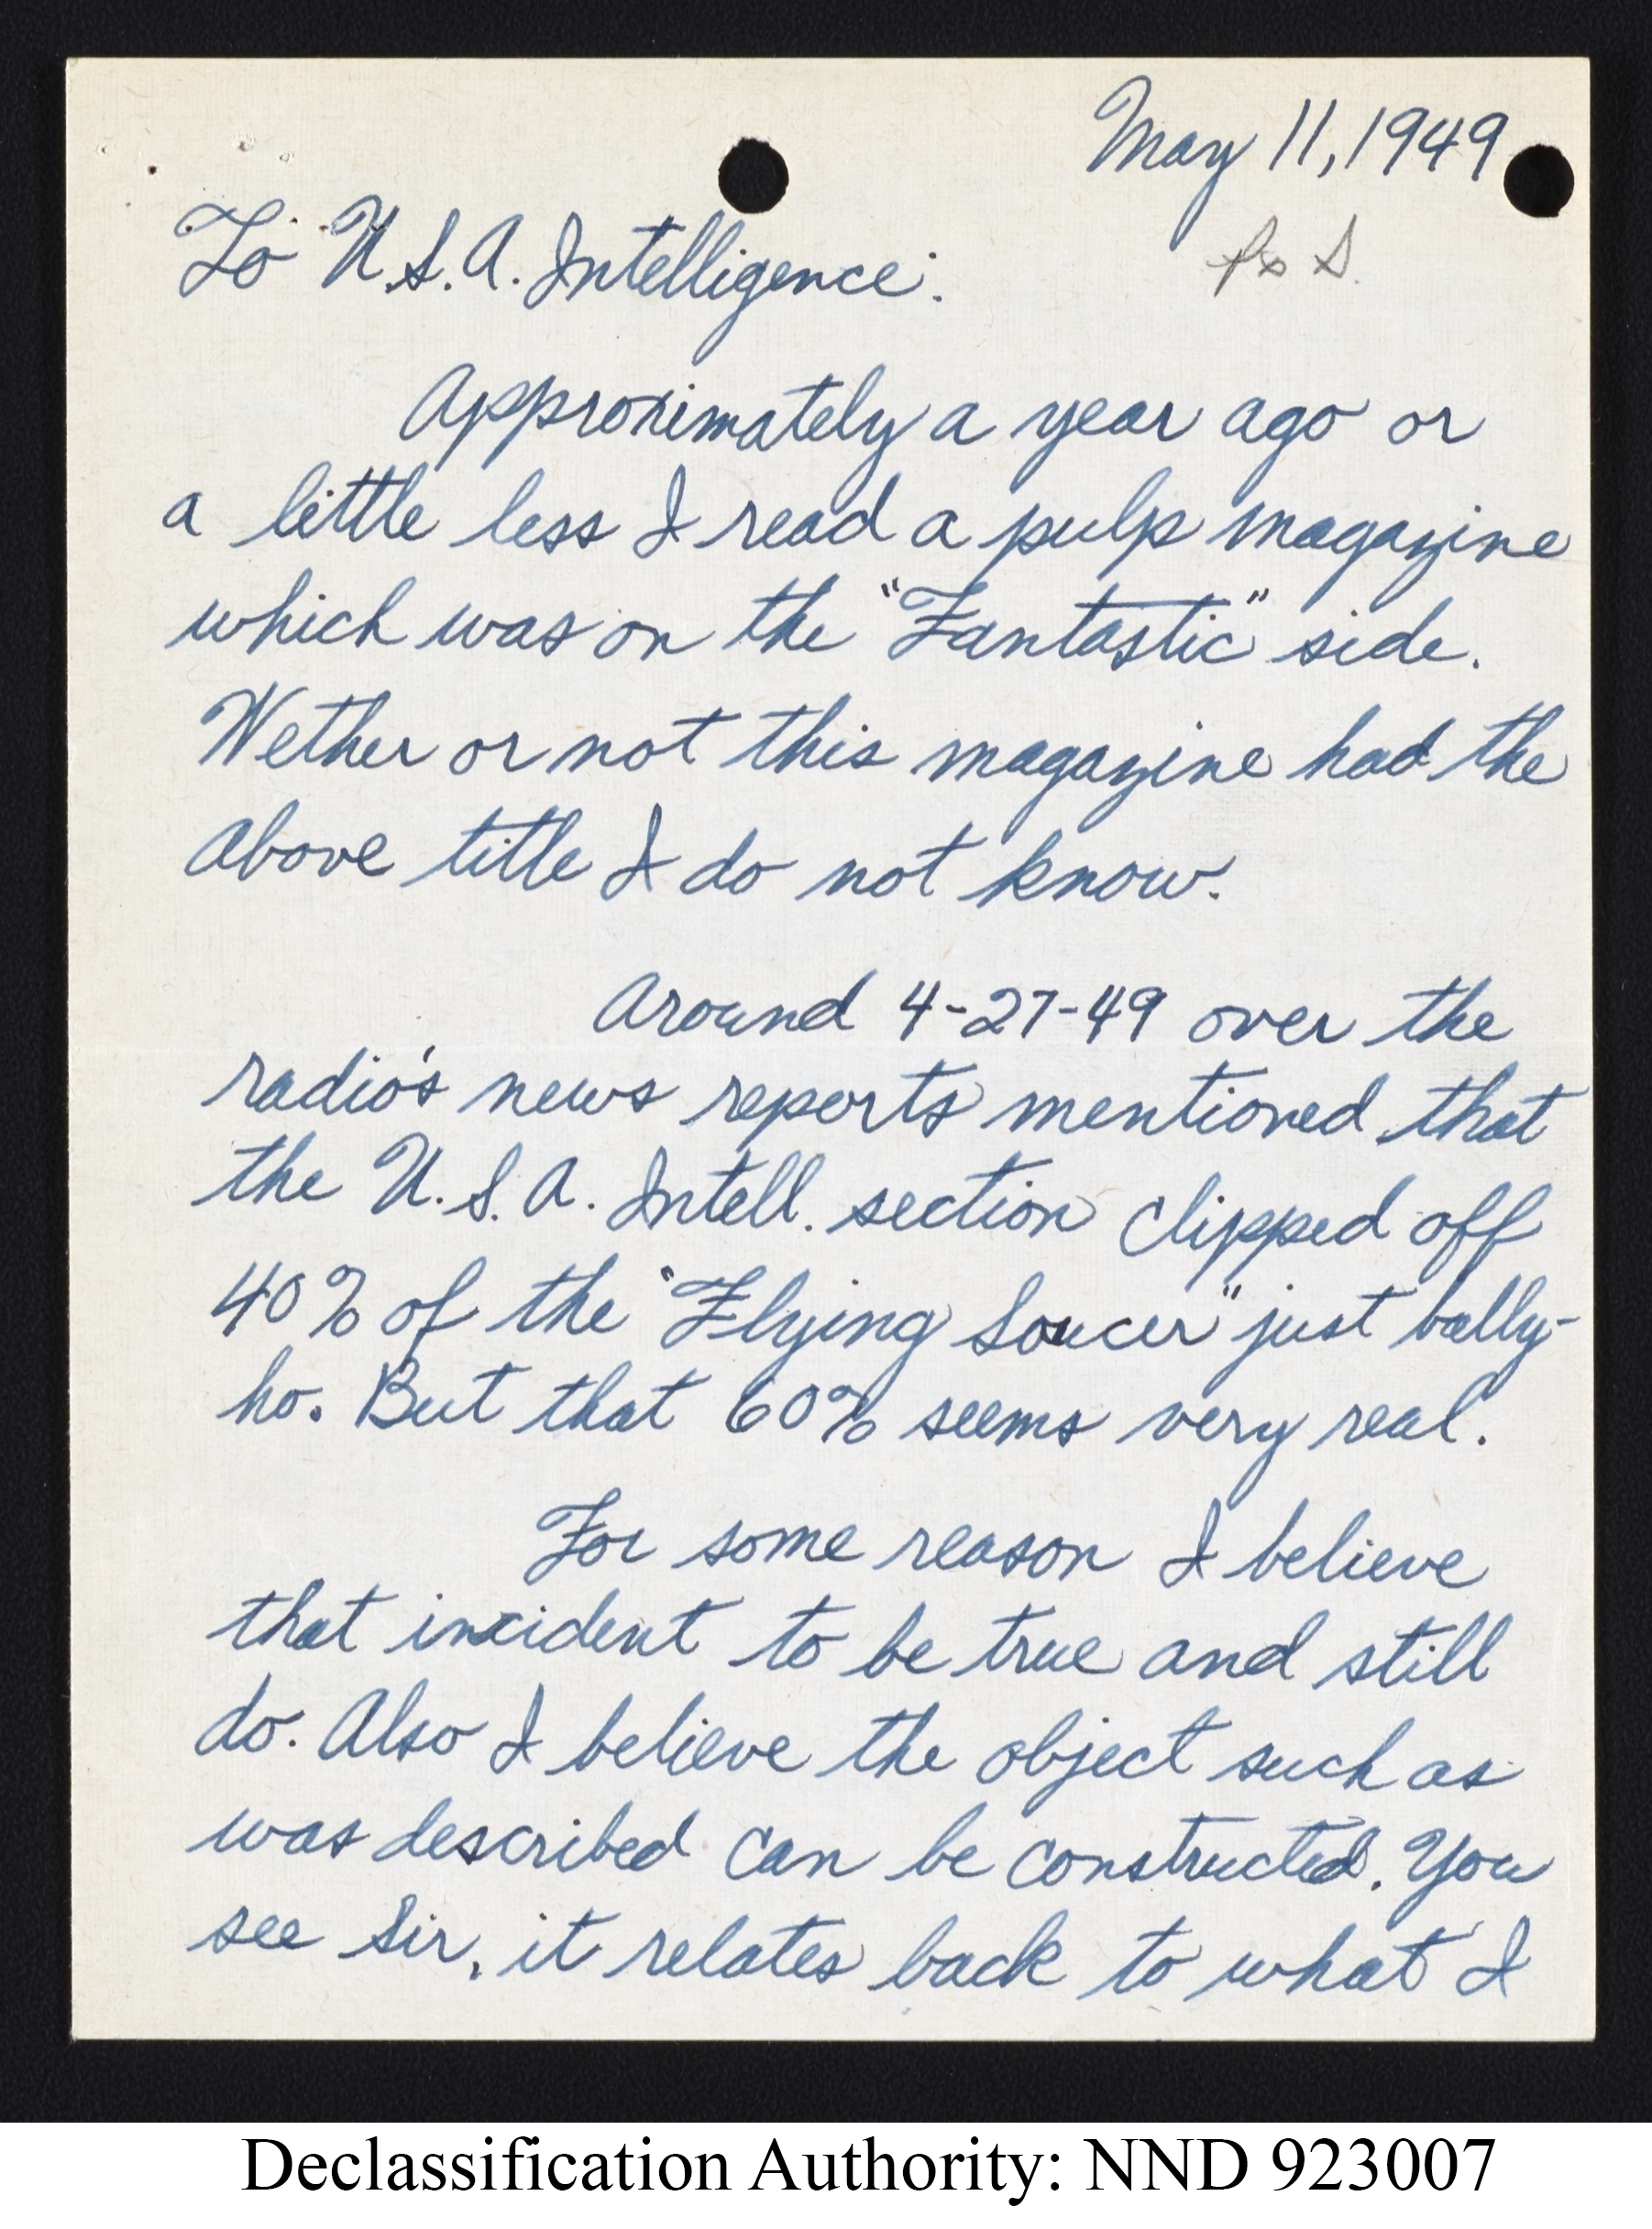 May 11, 1949
To U.S.A. Intelligence:
Approximately a year ago or
a little less I read a pulp magazine
which was on the "Fantastic" side.
Wether or not this magazine had the
above title I do not know.
Around 4-27-49 over the
radio's news reports mentioned that
the U.S.A. Intell. section clipped off
40% of the "Flying Saucer" just bally-
ho. But that 60% seems very real.
For some reason I believe
that incident to be true and still
do. Also I believe the object such as
was described can be constructed. You
see Sir, it relates back to what I
Declassification Authority: NND 923007